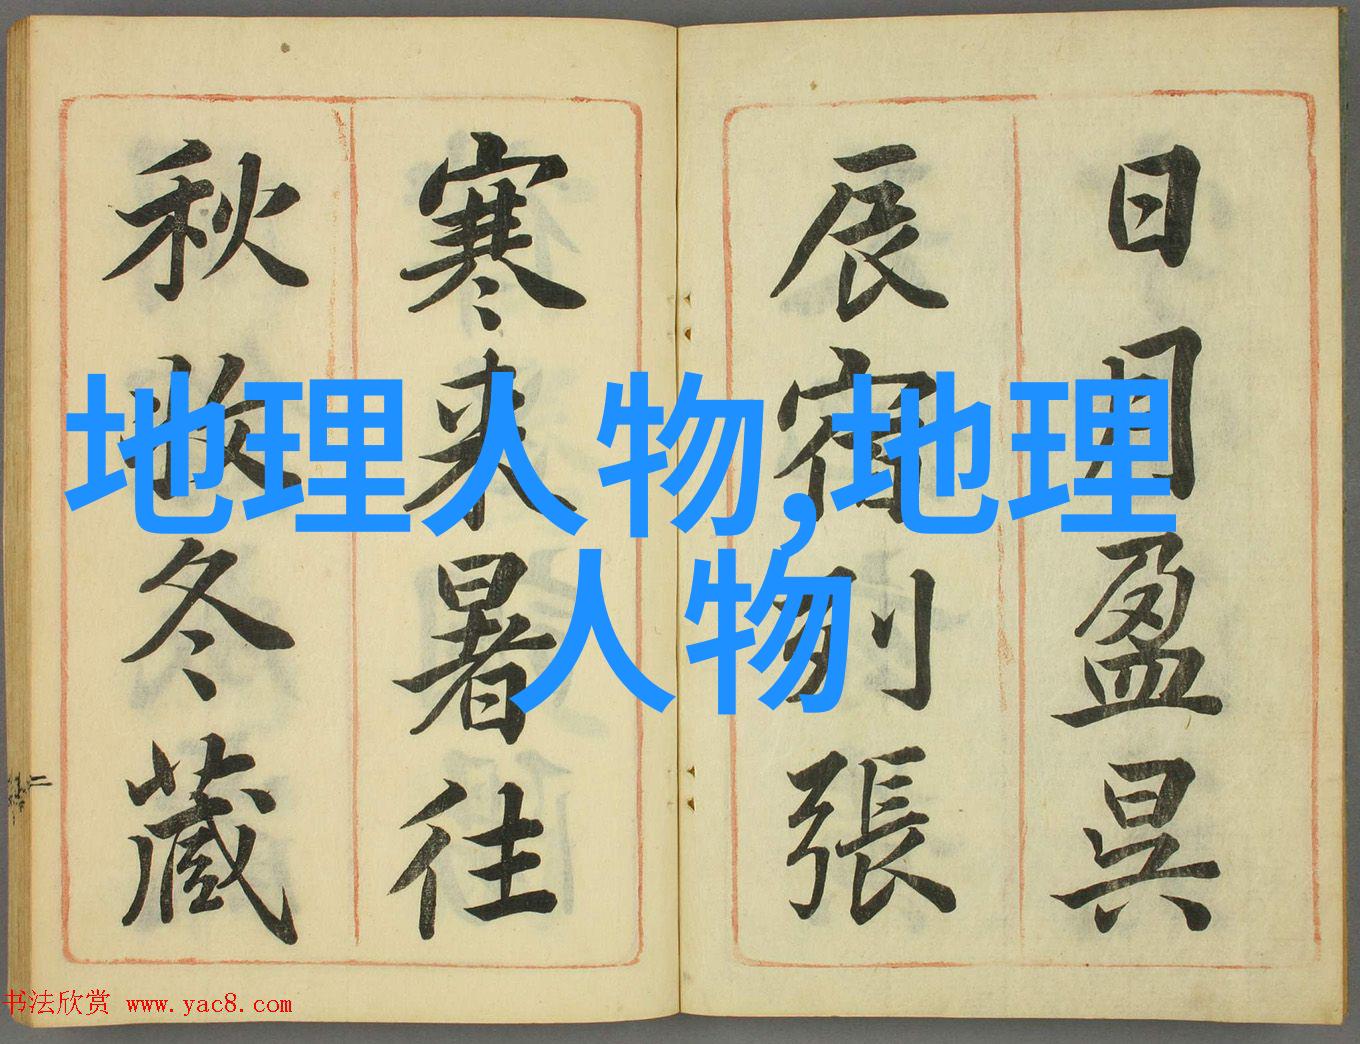 日月盈昃
辰宿列張
寒来暑往
秋收冬藏
地理人物,地理
人物
书法欣赏 www.yac8.com